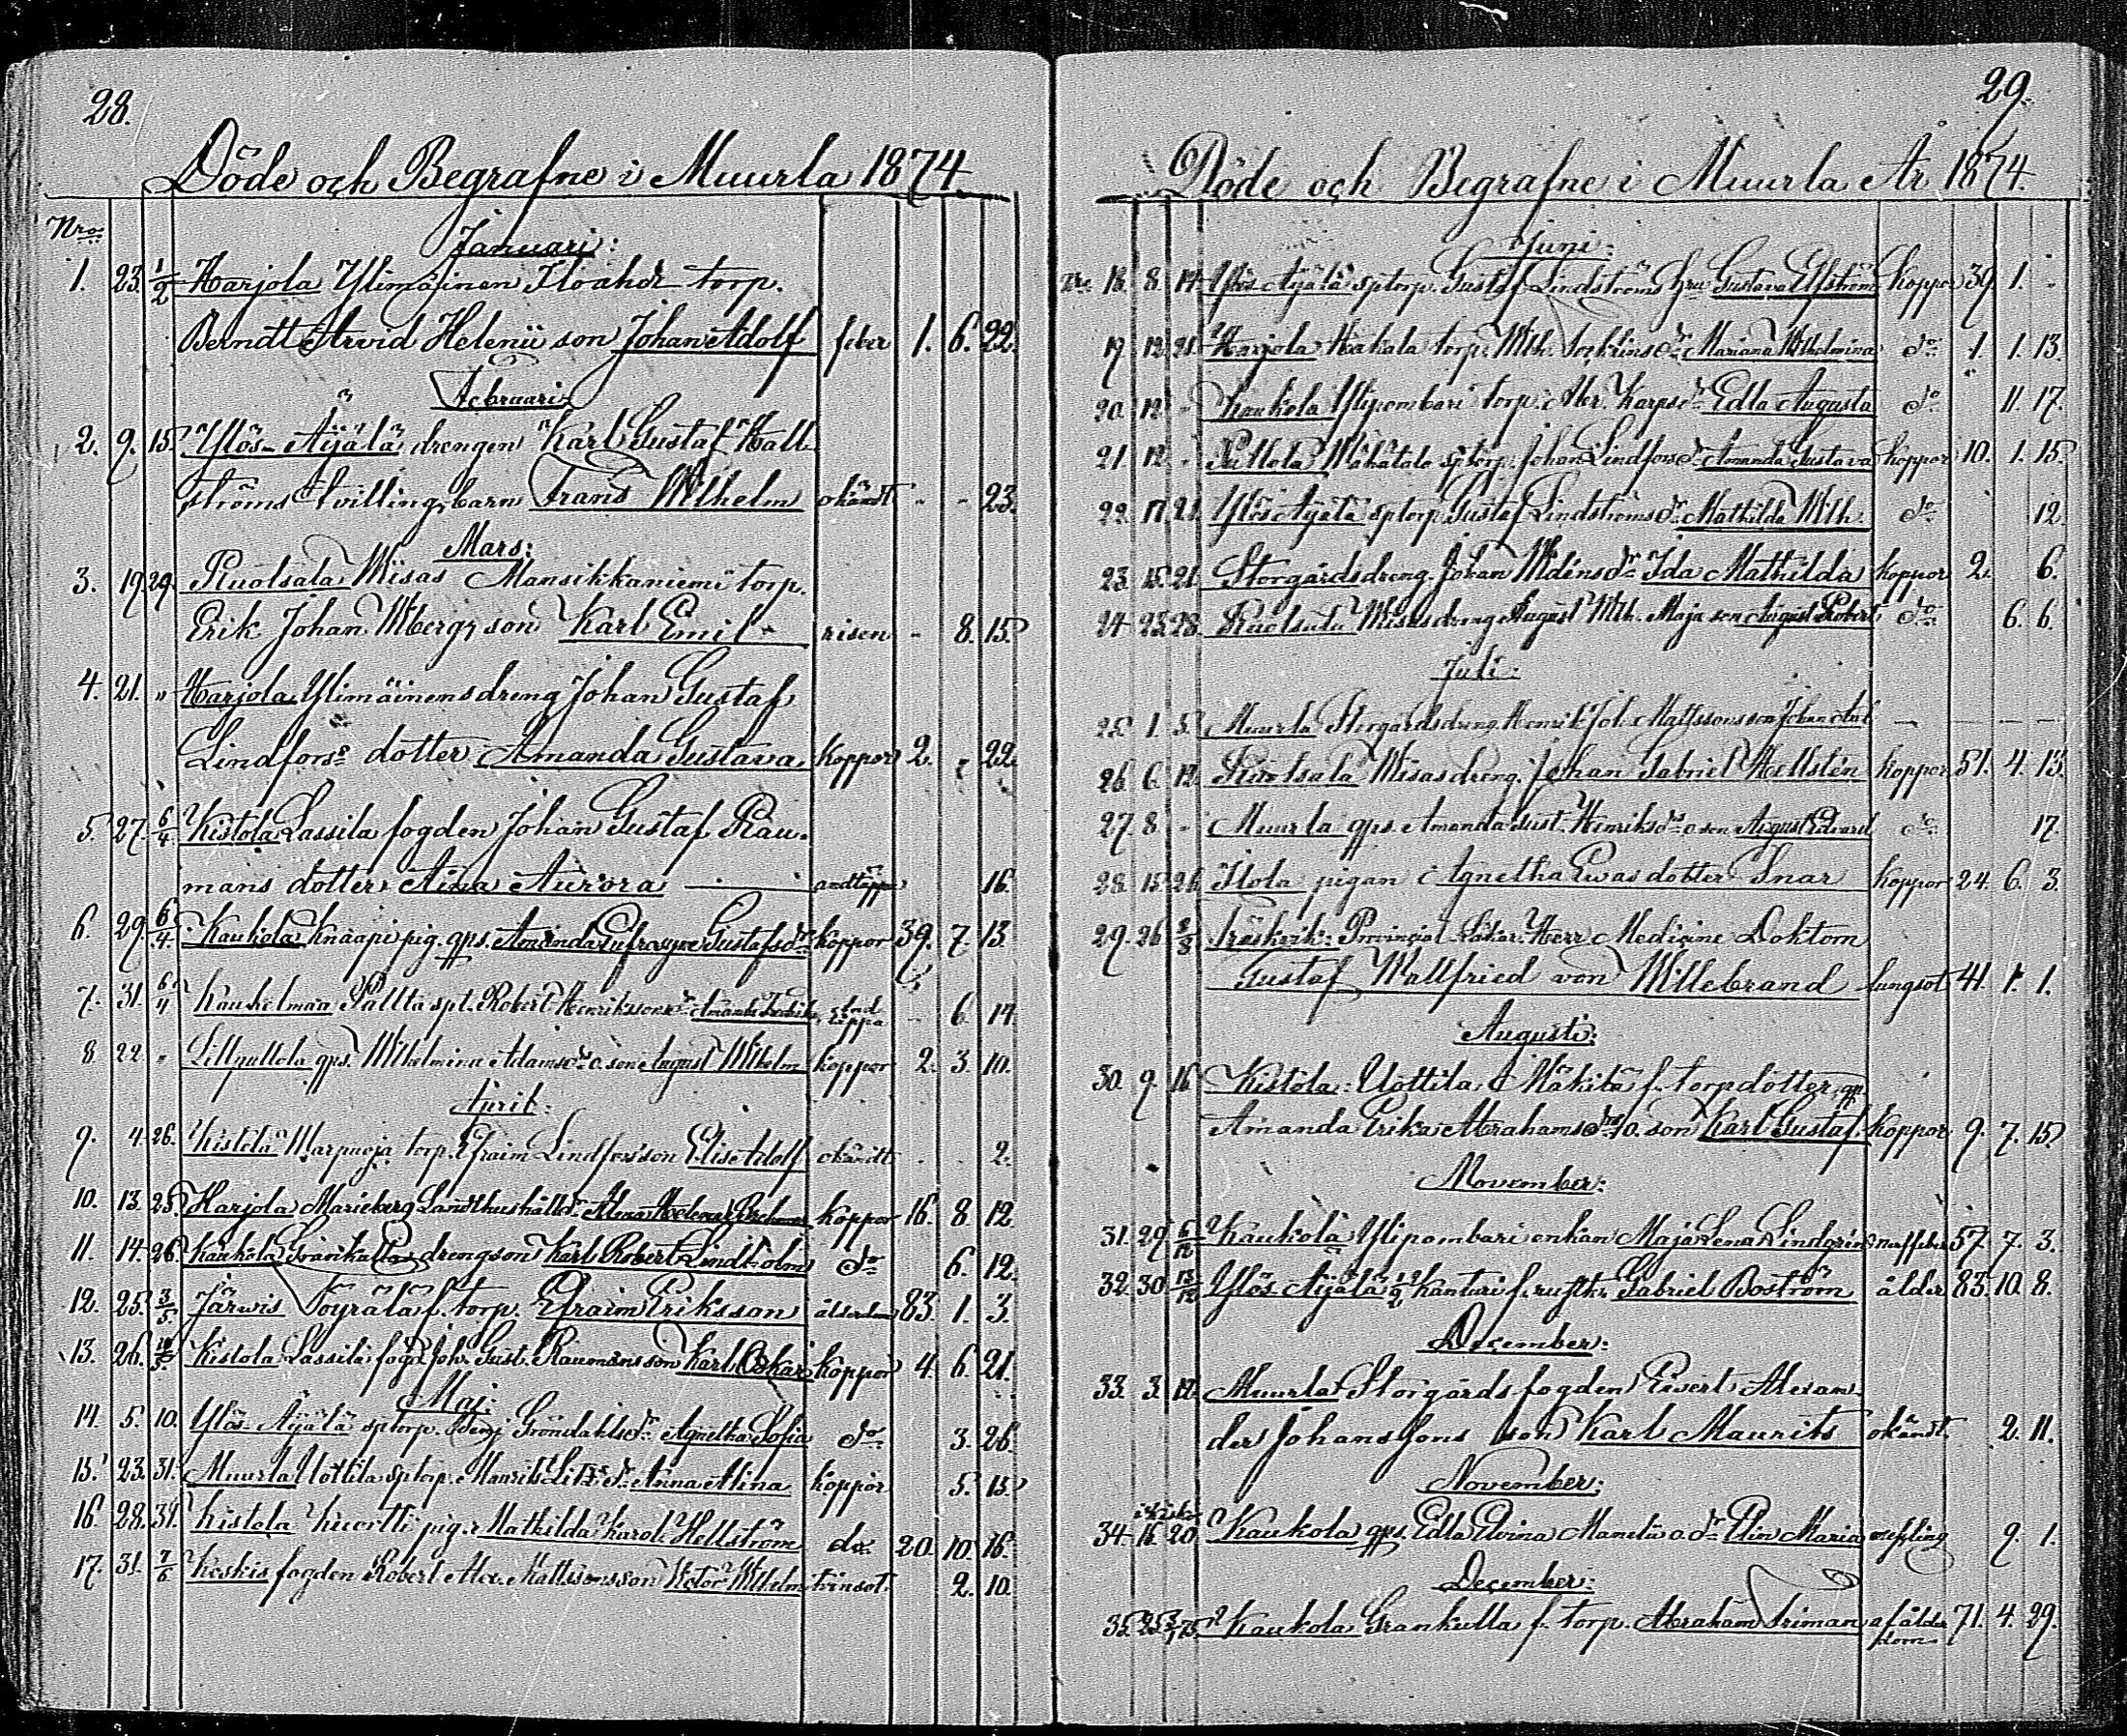 28.
Döde och Begrafne i Muurla 1874
Nro
Januari:
1. 23. 1/2 Harjola Ylimäinen torp.
Berndt Arvid Helenii son Johan Adolf feber 1. 6. 22.
Februari
2. 9. 15. Ylös-Äijälä drengen Karl Gustaf Hall-
ströms tvilling barn Frans Wilhelm okändt - - 23.
Mars:
3. 19. 29. Ruotsala Wisas Mansikkaniemi torp.
Erik Johan Wibergs son Karl Emil risen - 8. 15.
4. 21. " Harjola Ylimäinens dreng Johan Gustaf
Lindfors dotter Amanda Gustava koppor 2. - 22.
5. 27. 6/4 Kistola Lassila fogden Johan Gustaf Rau-
mans dotter Aina Aurora andtäppa 16.
6. 29. 6/4 Kaukola Knaapi pig. qps. Amanda Eufrosyne Gustafsdr koppor 39. 7. 13.
7. 31. 6/4 Kaukelmaa Pallta spt. Robert Henrikssons dr Amanda andtäppa - 6. 14.
8 22 " Lillpullola qps. Wilhelmina Adamsdrs o. son August Wilhelm koppor 2. 3. 10.
April:
9. 4. 26. Kistola torp. Efraim Lindfors son Elis Adolf okändt - - 2.
10. 13. 25. Harjola Marieberg Landthushålld. Alma Helena koppor 16. 8. 12
11. 14. 26. Kaukola Grankulla drengson Karl Robert Lindholm do 6. 12.
12. 25. 3/5 Järwis Töyrälä f. torp. Efraim Eriksson ålderdom 83. 1. 3.
13. 26. 10/5 Kistola Lassila fogd. Joh. Gust. Raumans son Karl Oskar koppor 4. 6. 21.
Maj:
14. 5. 10. Ylös-Äijälä sptorp. Benj. Gröndahls dr Agnetha Sofia do 3. 26.
15. 23. 31. Muurla Uottila sptorp. Maurits dr Anna Alina koppor 5. 15.
16. 28. 31. Kistola pig. Mathilda Karol. Hellström do 20. 10. 16.
17. 31. 7/6 Koskis fogden Robert Alex. Mattssons son Victor Wilhelm tvinsot 2. 10.
29.
Döde och Begrafne i Muurla År 1874.
Juni:
Nro 18. 8. 14. Ylös Äijälä sptorp. Gustaf Lindströms hru Gustava Elfström koppor 39. 1. -
19. 12. 21. Harjola Hakala torp. Wilh. dr Mariana Wilhelmina do 1. 1. 13.
20. 12. - Kaukola Ylipombari torp. Abr. Karps dr Edla Augusta do 11. 17.
21. 12. - Pullola Mähätalo sptorp. Johan Lindfors dr Amanda Gustava koppor 10. 1. 15.
22. 17. 21. Ylös Äijälä sptorp. Gustaf Lindströms dr Mathilda Wilh. do 12.
23. 15. 21. Storgårds dreng. Johan Widéns dr Ida Mathilda koppor 2. 6.
24. 23. 28. Ruotsala Wisas dreng August Wilh. Maja son August Robert do 6. 6.
Juli:
25. 1. 5. Muurla Storgårds dreng. Henrik Joh. Mattssons son Johan — — —
26. 6. 12. Ruotsala Wisas dreng. Johan Gabriel Hellstén koppor 51. 4. 13.
27. 8. - Muurla qps. Amanda Gust. Henriksdrs o. son August Edvard do 17.
28. 15. 26. Ilola pigan Agnetha Ewasdotter Snar koppor 24. 6. 3.
29. 26. Träskvik: Provincial Läkar. Herr Medicine Doktorn
Gustaf Wallfried von Willebrand lungsot 41. 1. 1.
Augusti:
30. 9. 16 Kistola: Uottila Mäkilä f. torpdotter qp.
Amanda Erika Abrahamsdrs o. son Karl Gustaf koppor 9. 7. 15
November:
31. 29. 6/12 Kaukola Ylipombari enkan Maja Lena Lindgrén 57. 7. 3.
32. 30. 13/12 Ylös Äijälä 1/2 Kanturi f. rusth. Gabriel Boström ålder 83. 10. 8.
December:
33. 3. 12. Muurla Storgårds fogden Evert Alexan-
der Johanssons son Karl Maurits okändt. 2. 11.
November:
34. 16. 20. Kaukola qps. Edla Elvina o. dr Elin Maria messling 9. 1.
December:
35. 25. 3/1 75 Kaukola Grankulla f. torp. Abraham Friman af ålder 71. 4. 29.
dom